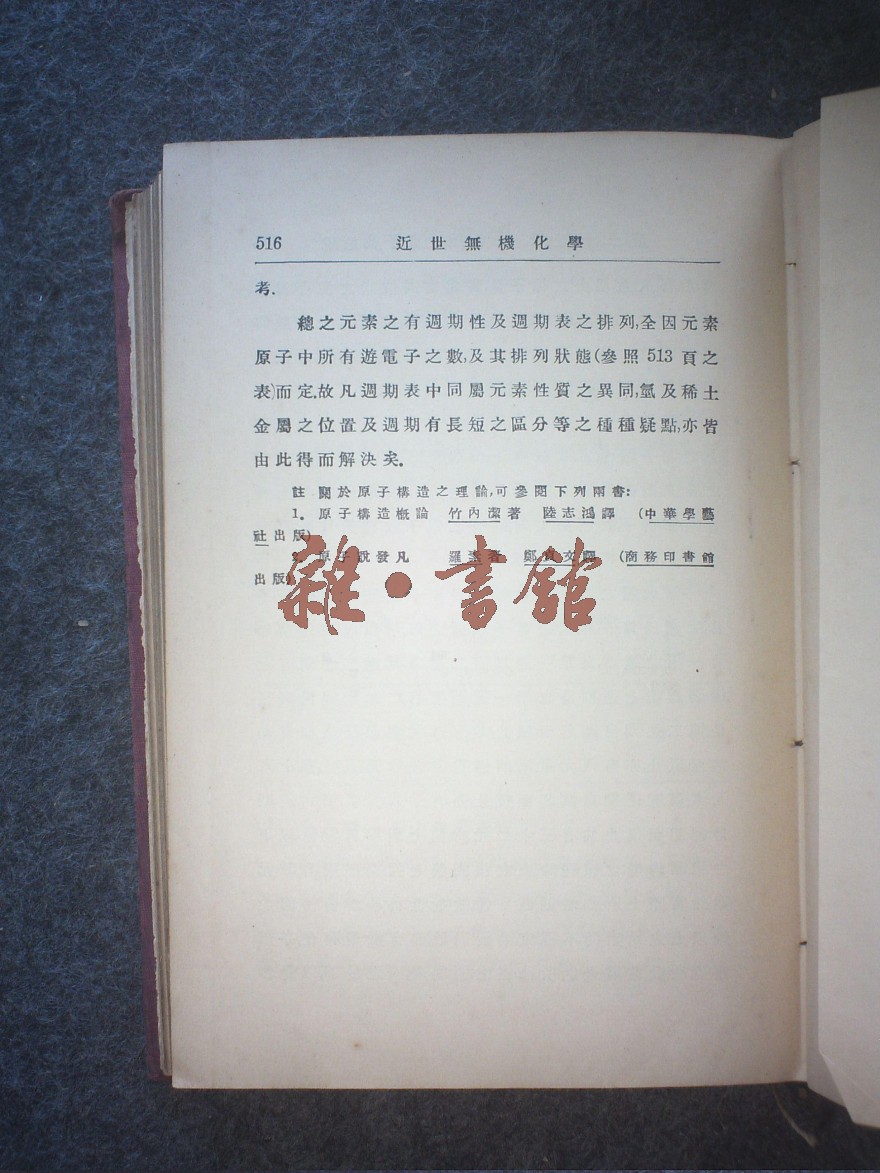 516 近世無機化學
考.
總之元素之有週期性及週期表之排列,全因元素
原子中所有遊電子之數,及其排列狀態(參照 513 頁之
表)而定.故凡週期表中同屬元素性質之異同,氬及稀土
金屬之位置及週期有長短之區分等之種種疑點,亦皆
由此得而解決矣.
註 關於原子構造之理論,可參閱下列兩書:
1. 原子構造概論 竹內潔著 陸志鴻譯 (中華學藝
社出版)
2. 原子說發凡 羅素著 鄭貞文譯 (商務印書館
出版)
雜·書館